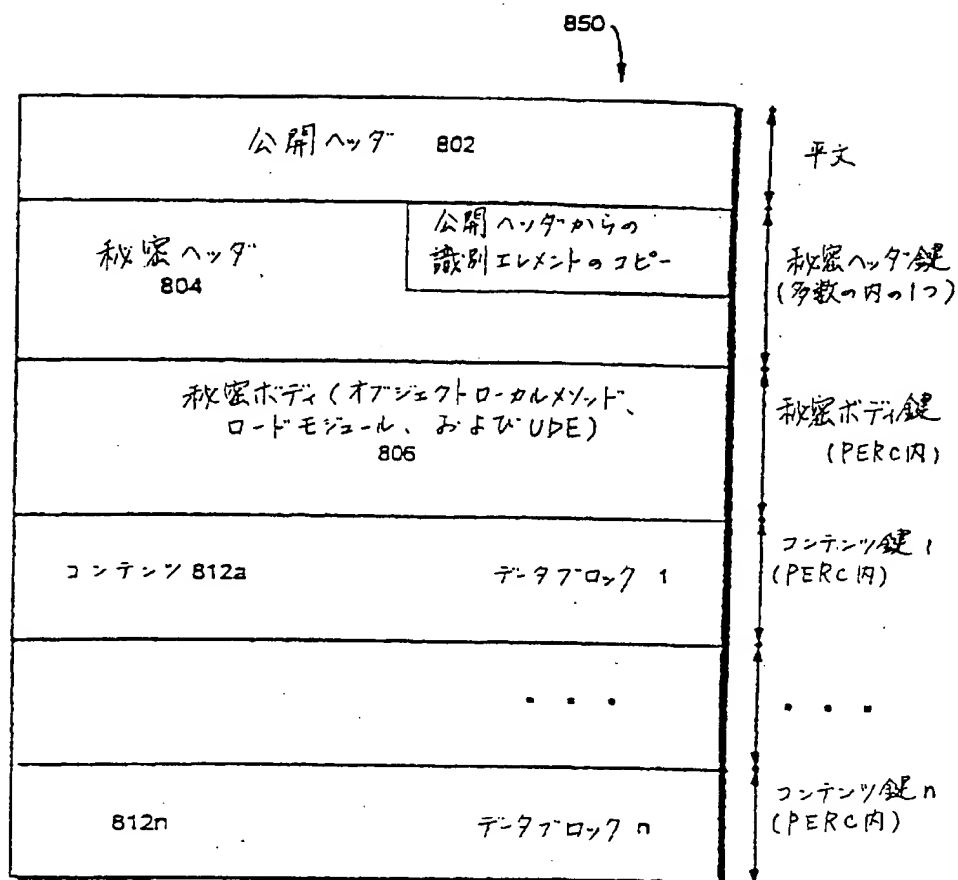 850
公開ヘッダ 802
平文
公開ヘッダからの
識別エレメントのコピー
秘密ヘッダ
804
秘密ヘッダ鍵
(多数の内の1つ)
秘密ボディ(オブジェクトローカルメソッド、
ロードモジュール、およびUDE)
806
秘密ボディ鍵
(PERC内)
コンテンツ 812a データブロック 1
コンテンツ鍵 1
(PERC内)
・・・
・・・
812n データブロック n
コンテンツ鍵 n
(PERC内)